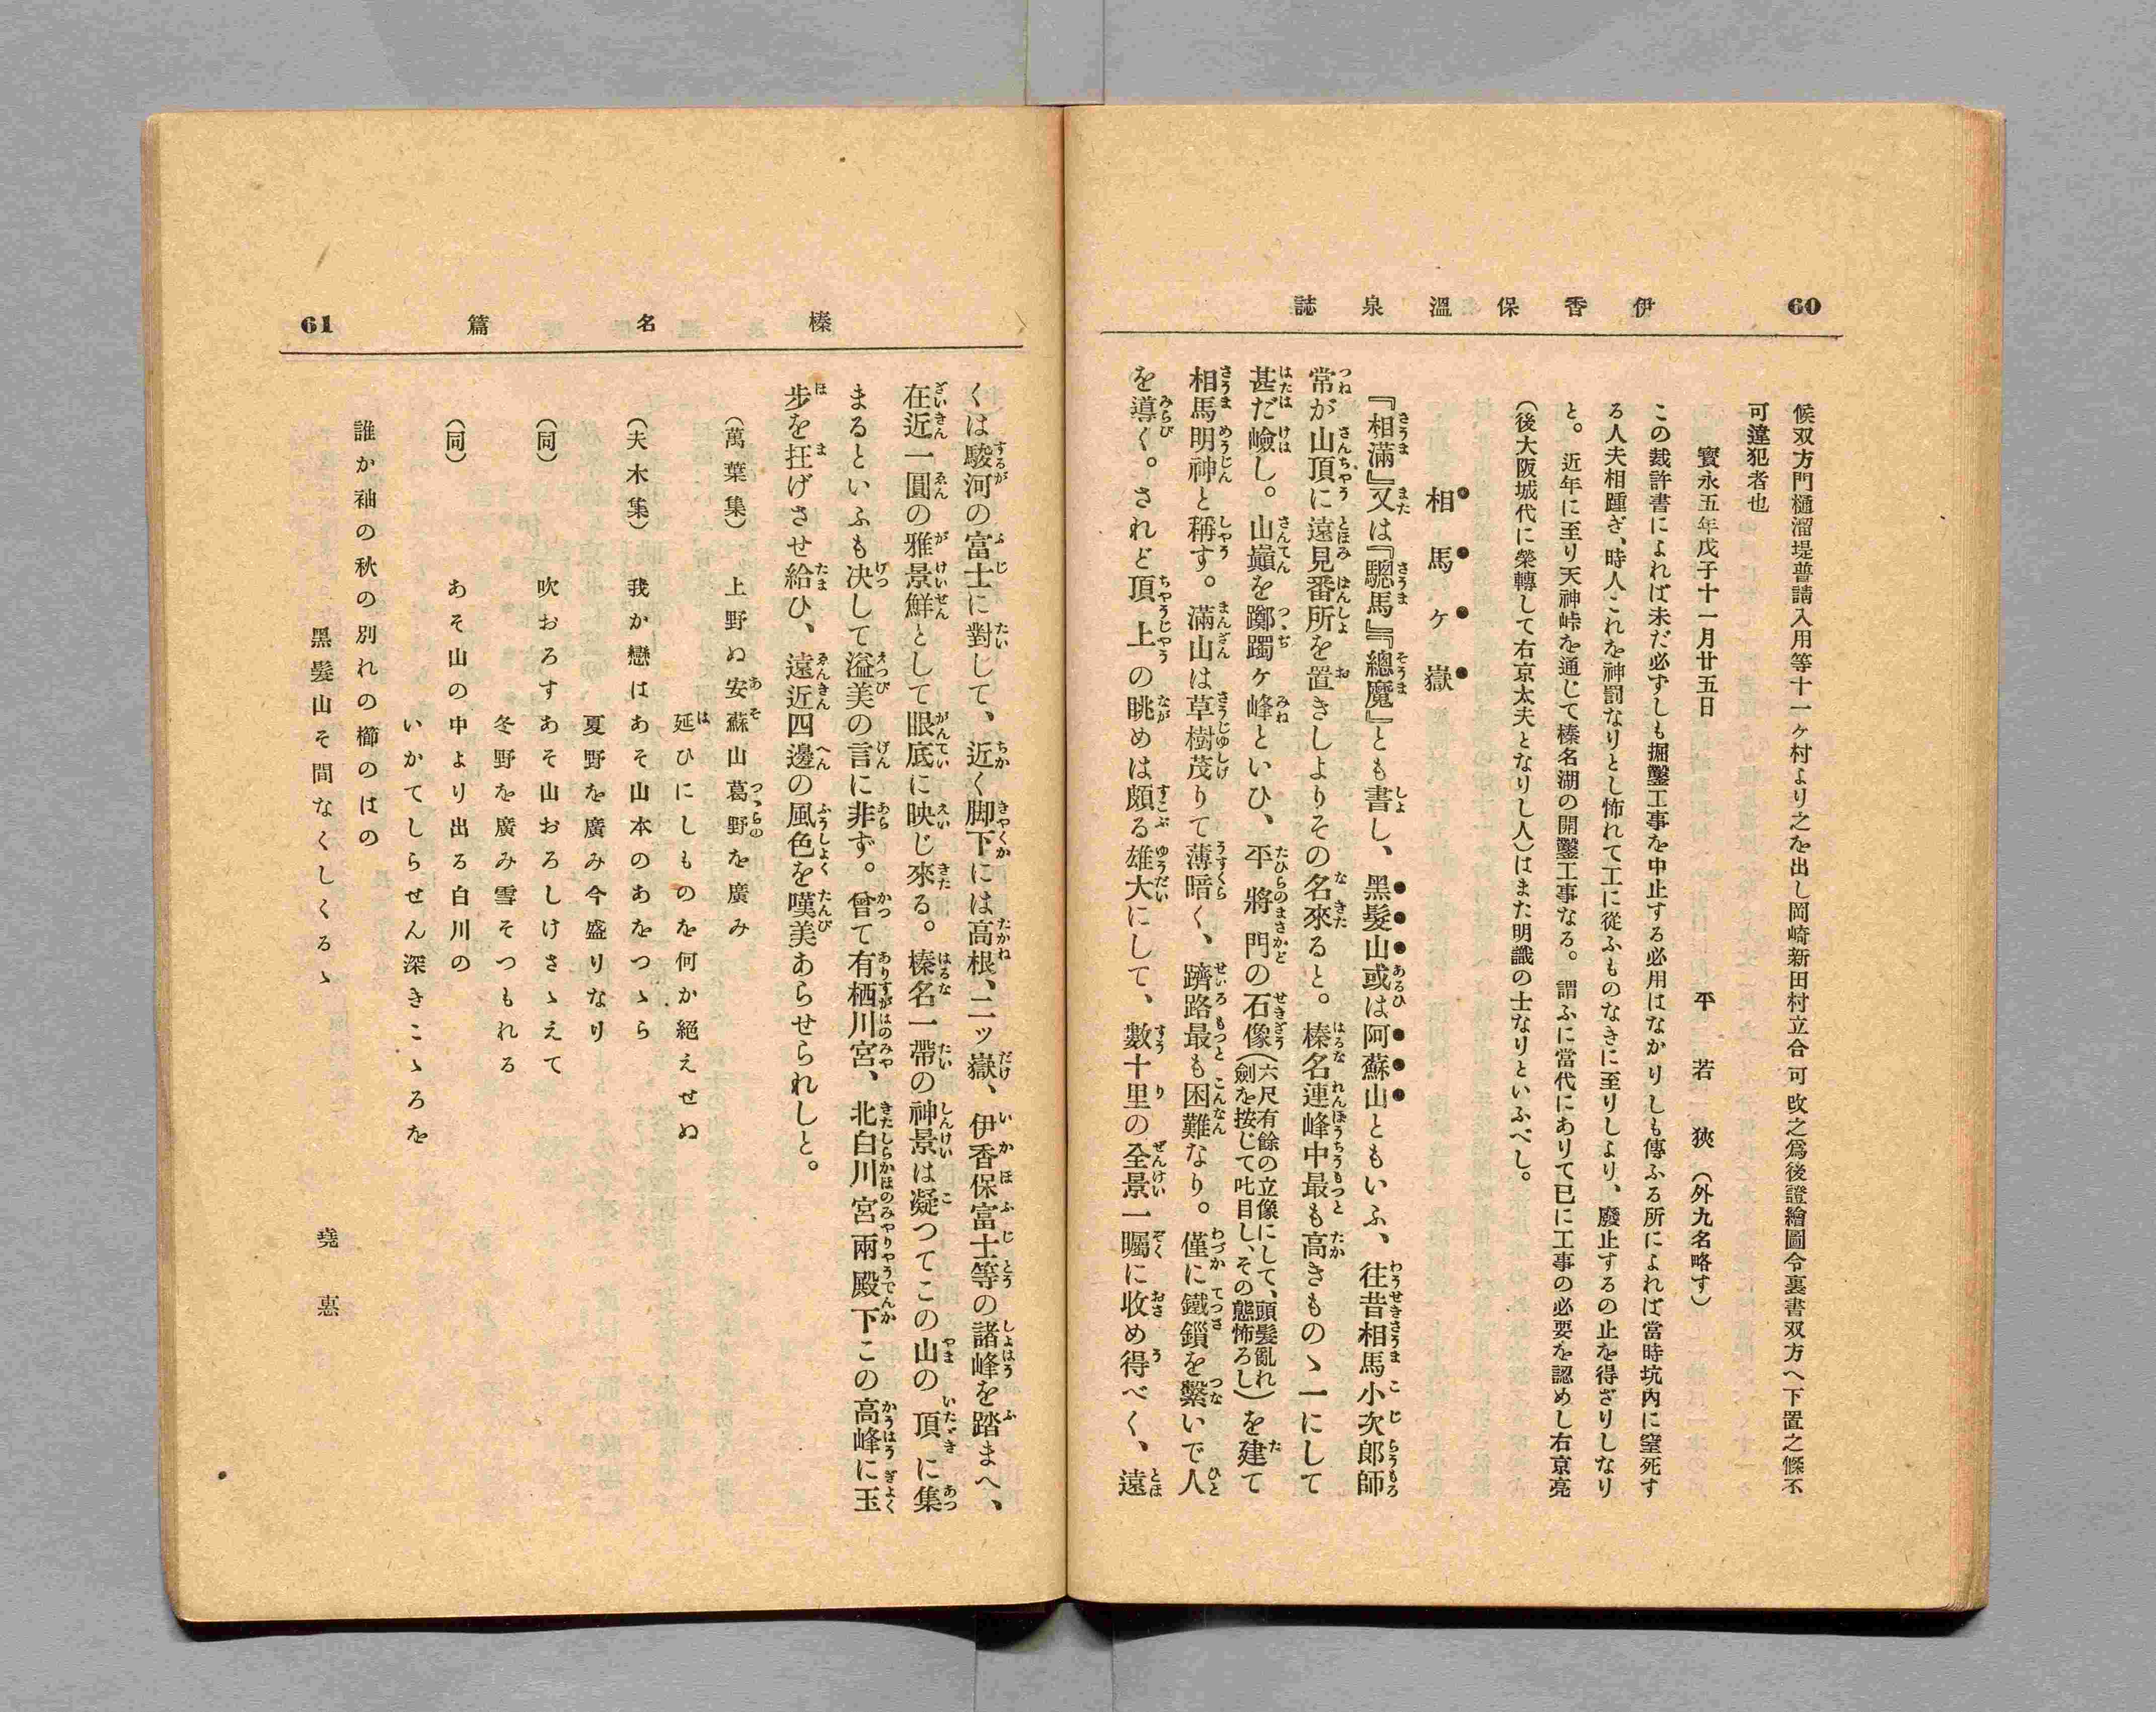 60
伊香保溫泉誌
候双方門樋溜堤普請入用等十一ヶ村より之を出し岡崎新田村立合可改之爲後證繪圖令裏書双方へ下置之條不
可違犯者也
寳永五年戊子十一月廿五日
平若狹(外九名略す)
この裁許書によれば未だ必ずしも掘鑿工事を中止する必用はなかりしも傳ふる所によれば當時坑內に窒死す
る人夫相踵ぎ、時人これを神罰なりとし怖れて工に從ふものなきに至りしより、廢止するの止を得ざりしなり
と。近年に至り天神峠を通じて榛名湖の開鑿工事なる。謂ふに當代にありて已に工事の必要を認めし右京亮
(後大阪城代に榮轉して右京太夫となりし人)はまた明識の士なりといふべし。
相馬ヶ嶽
『相滿』又は『驄馬』『總魔』とも書し、黑髮山或は阿蘇山ともいふ、往昔相馬小次郎師
常が山頂に遠見番所を置きしよりその名來ると。榛名連峰中最も高きものゝ一にして
甚だ嶮し。山巓を躑躅ヶ峰といひ、平將門の石像(六尺有餘の立像にして、頭髮亂れ劍を按じて叱目し、その態怖ろし)を建て
相馬明神と稱す。滿山は草樹茂りて薄暗く、躋路最も困難なり。僅に鐵鎖を繫いで人
を導く。されど頂上の眺めは頗る雄大にして、數十里の全景一矚に收め得べく、遠
61
榛名篇
くは駿河の富士に對して、近く脚下には高根、二ッ嶽、伊香保富士等の諸峰を踏まへ、
在近一圓の雅景鮮として眼底に映じ來る。榛名一帶の神景は凝つてこの山の頂に集
まるといふも決して溢美の言に非ず。曾て有栖川宮、北白川宮兩殿下この高峰に玉
步を抂げさせ給ひ、遠近四邊の風色を嘆美あらせられしと。
(萬葉集)上野ぬ安蘇山葛野を廣み
延ひにしものを何か絕えせぬ
(夫木集)我か戀はあそ山本のあをつゝら
夏野を廣み今盛りなり
(同)吹おろすあそ山おろしけさゝえて
冬野を廣み雪そつもれる
(同)あそ山の中より出る白川の
いかてしらせん深きこゝろを
誰か袖の秋の別れの櫛のはの
黑髮山そ間なくしくるゝ
堯惠